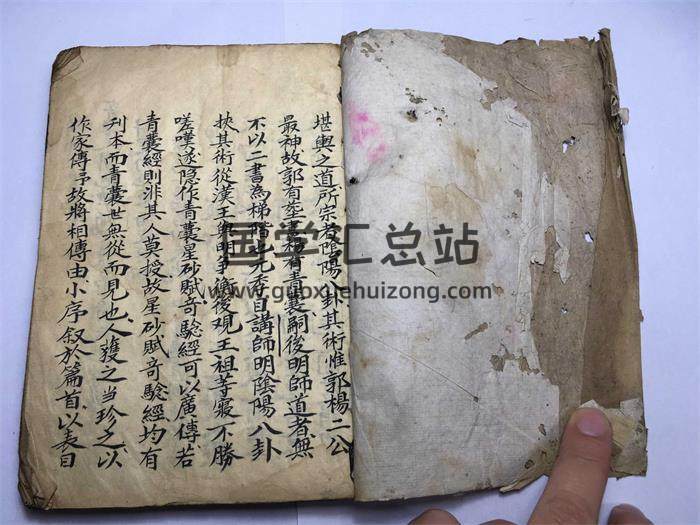 堪輿之道所宗者陰陽八卦其術惟郭楊二公
最神故郭有塟書楊有青囊嗣後明師道者無
不以二書為梯階也元季目講師明陰陽八卦
挾其術從漢王與明爭衡後观王祖等寢不勝
嗟嘆遂隐作青囊星砂賦竒騐經可以廣傳若
青囊經則非其人莫授故星砂賦竒騐經均有
刋本而青囊世無從而見也人獲之當珍之以
作家傳予故將相傳由小序叙於篇首以表目
国学汇总站
www.guoxuehuizong.com